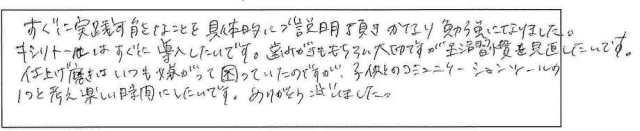 すぐに実践可能なことを具体的にご説明頂きかなり勉強になりました。
キシリトールはすぐに導入したいです。歯みがきももちろん大切ですが生活習慣を見直したいです。
仕上げ磨きはいつも嫌がって困っていたのですが、子供とのコミュニケーションツールの
1つと考え楽しい時間にしたいです。ありがとうございました。